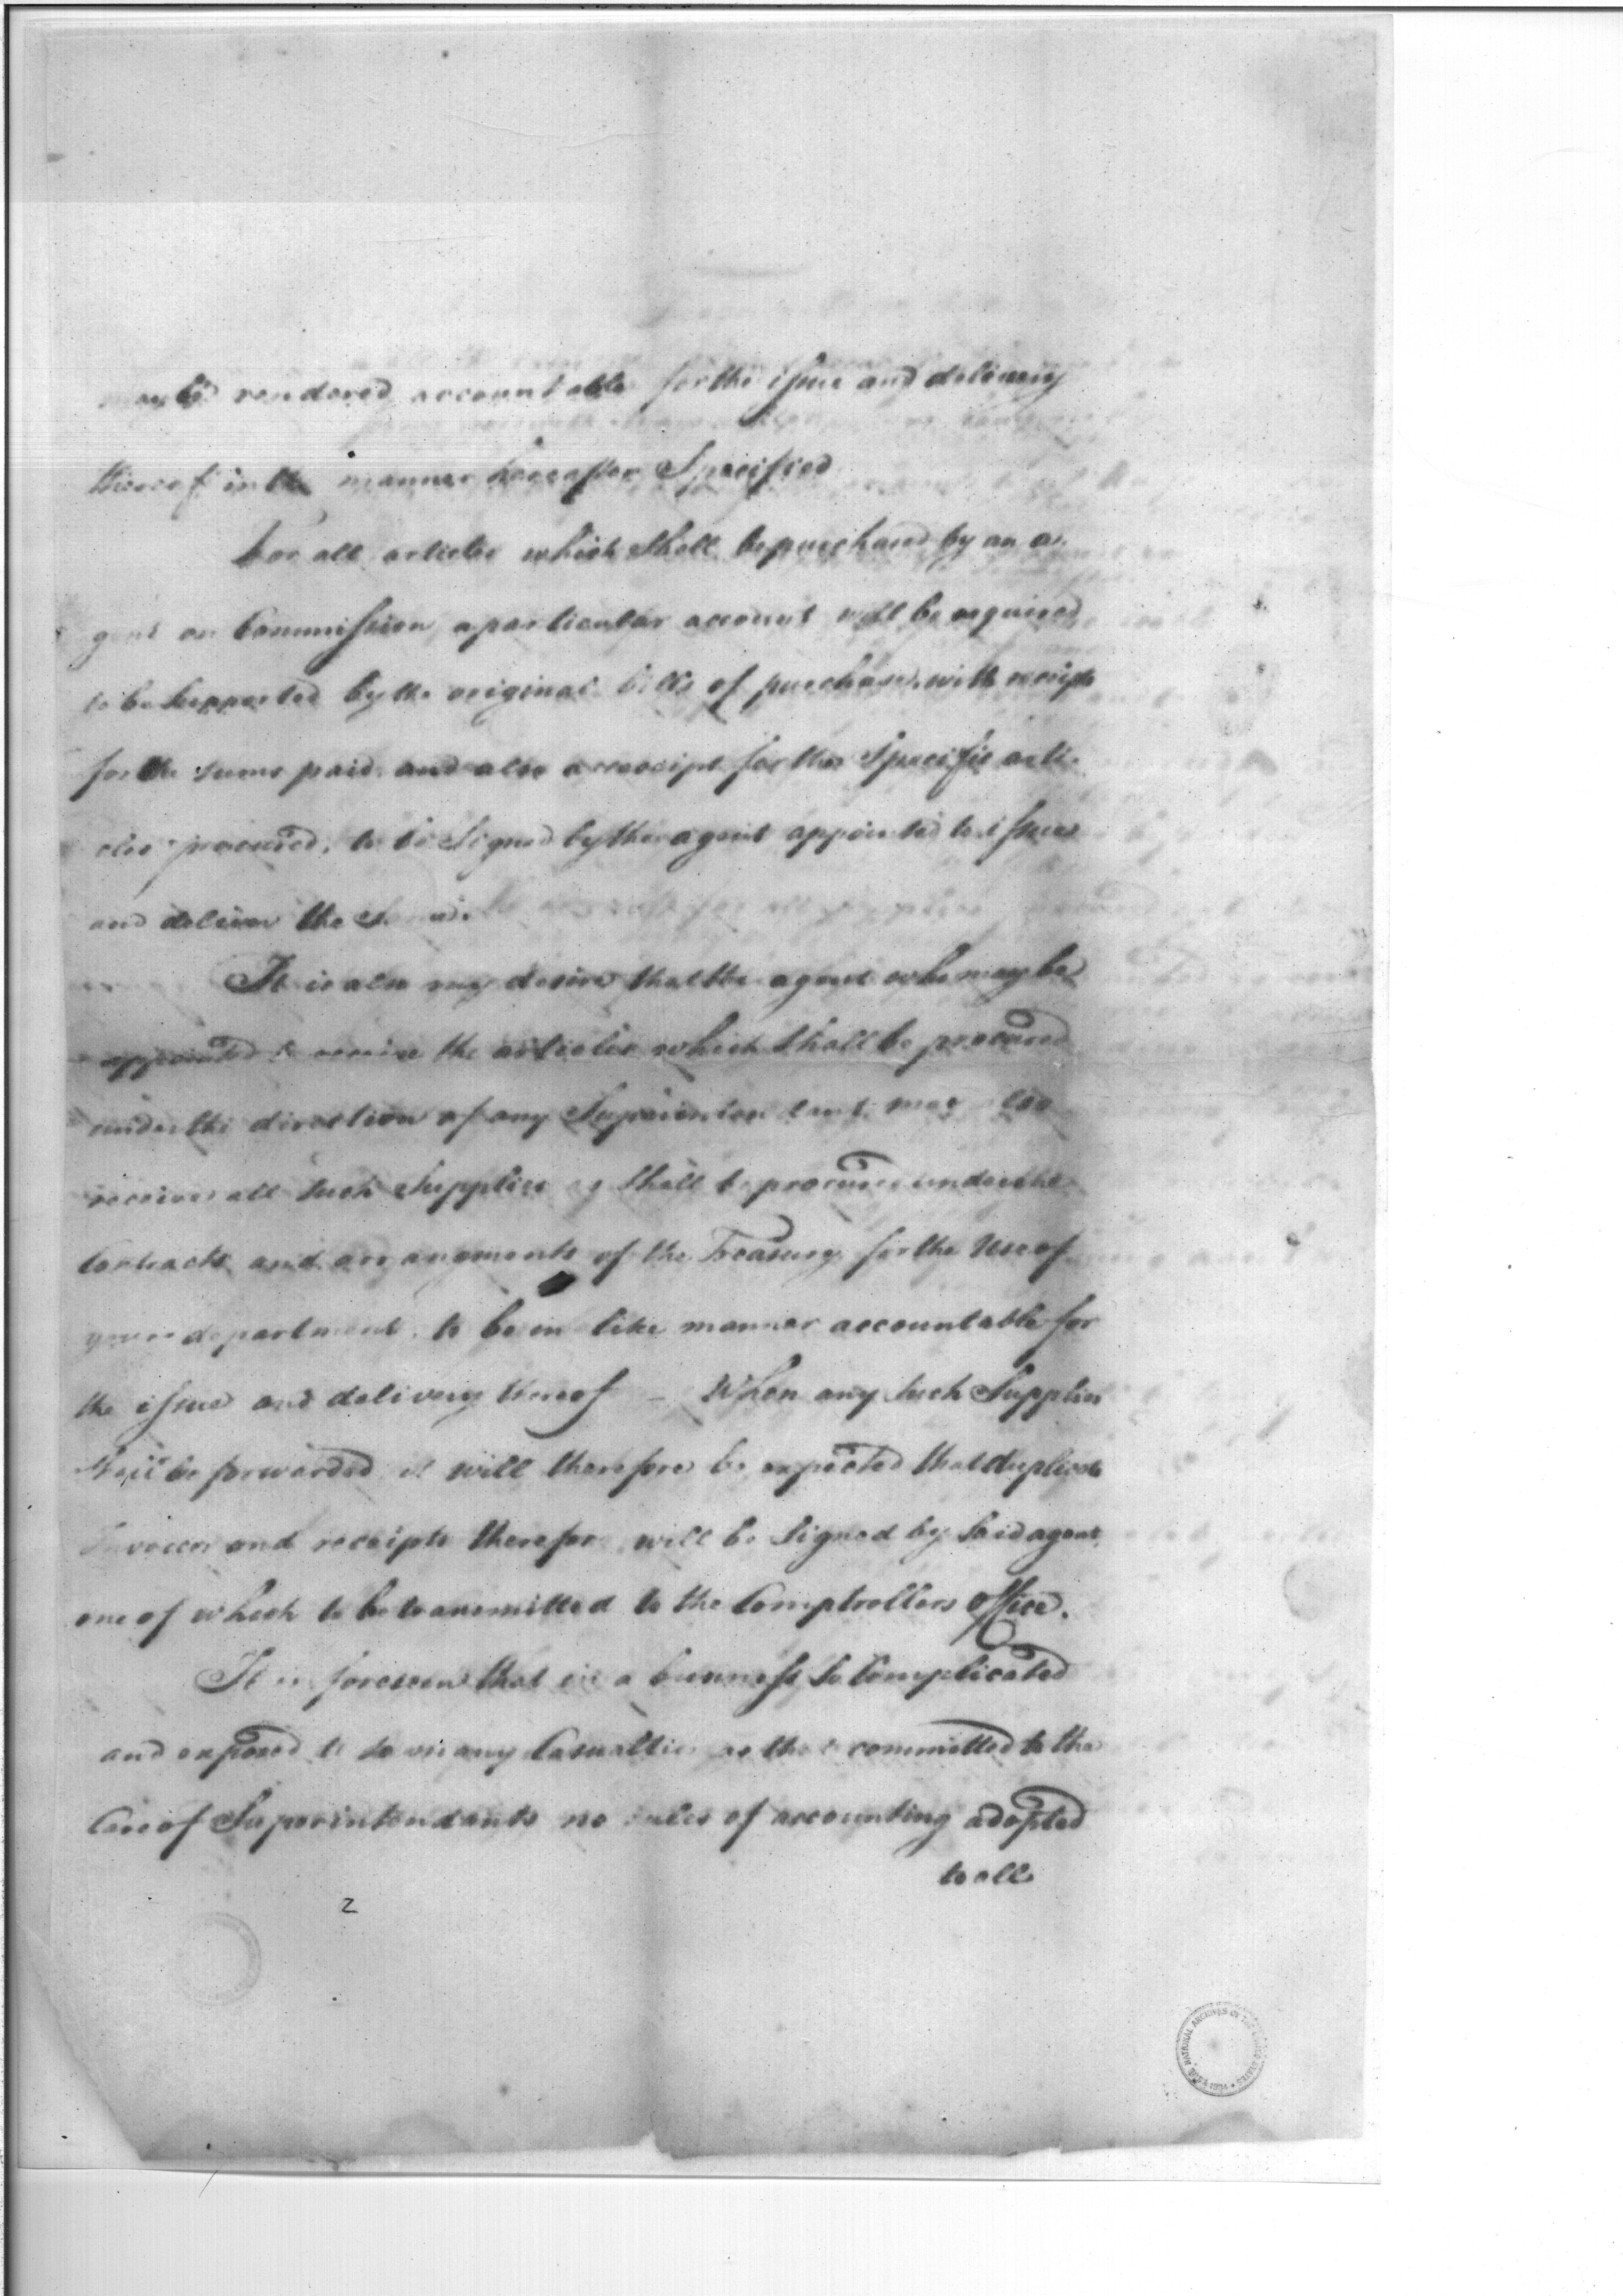 may be rendered accountable for the issue and delivery
thereof in the manner hereafter Specified
For all articles which shall be purchased by an a-
gent on Commission, a particular account will be required
to be Supported by the original bills of purchase, with receipts
for the sums paid, and also a receipt for the Specific arti-
cles procured, to be Signed by the agent appointed to issue
and deliver the same.
It is also my desire that the agent who may be
appointed to receive the articles which shall be procured
under the direction of any Superintendant, may also
receive all such Supplies as shall be procured under the
Contracts and arrangements of the Treasury for the Use of
your department, to be in like manner accountable for
the issue and delivery thereof — When any such Supplies
shall be forwarded it will therefore be expected that duplicate
Invoices and receipts therefor will be Signed by said agent,
one of which to be transmitted to the Comptrollers office.
It is foreseen that in a business so Complicated
and exposed to so many Casualties as that committed to the
Care of Superintendants no rules of accounting adopted
to all
2
THE NATIONAL ARCHIVES OF THE UNITED STATES 1934